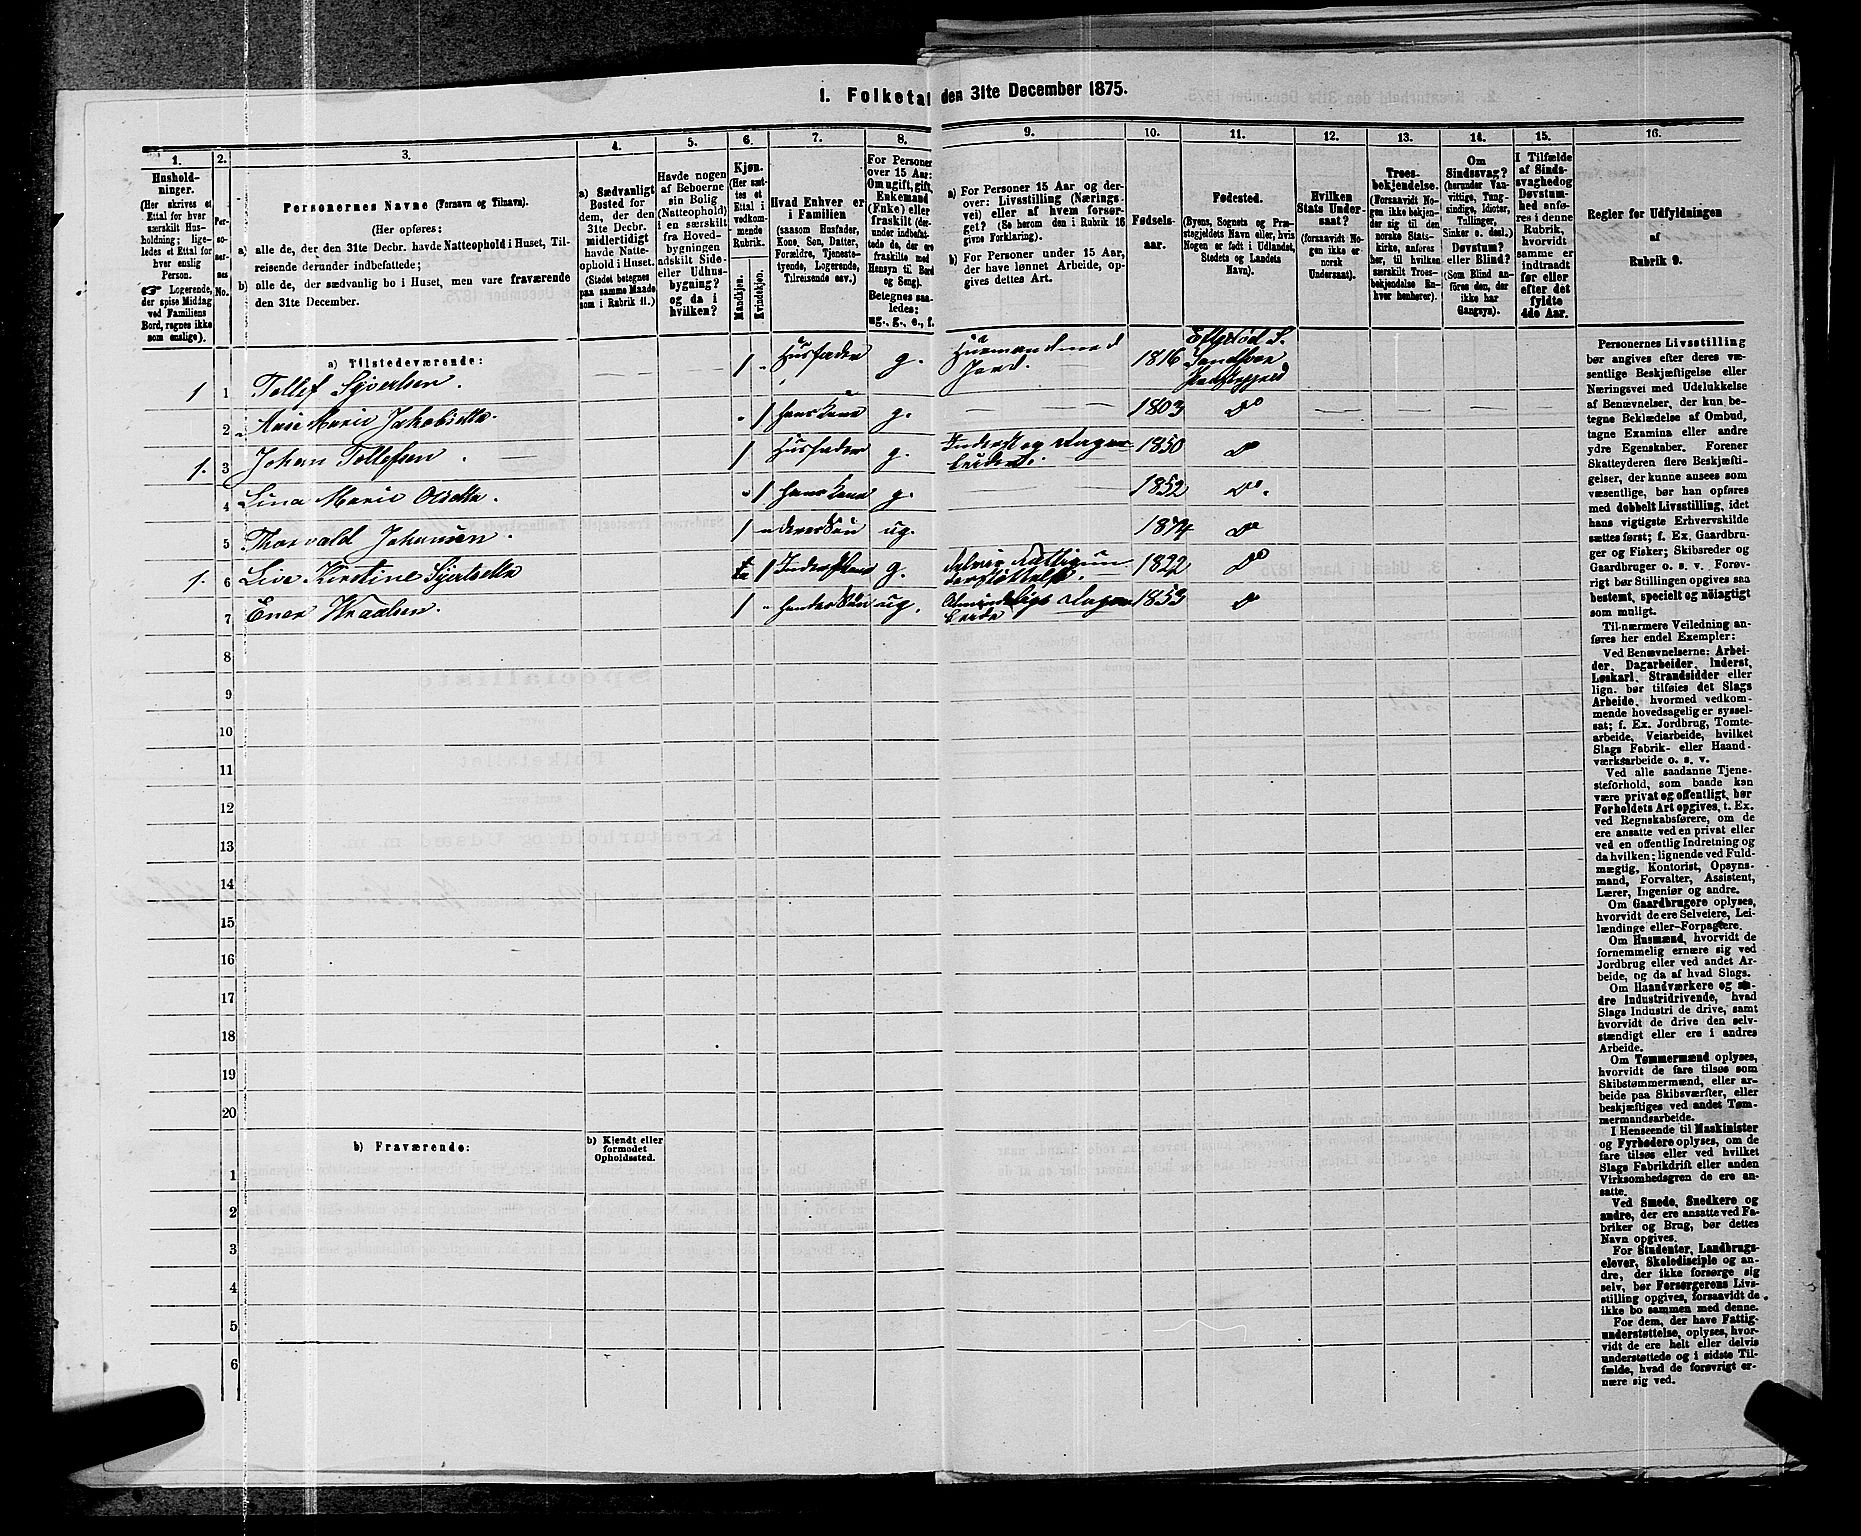 1. Folketal den 31te December 1875.
1. 2. 3. 4. 5. 6. 7. 8. 9. 10. 11. 12. 13. 14. 15. 16.
Hushold-
ninger.
(Her skrives et
Ettal for hver
særskilt Hus-
holdning; lige-
ledes et Ettal for
hver enslig
Person.
☞ Logerende,
der spise Middag
ved Familiens
Bord, regnes ikke
som enslige).
Per-
so-
ner-
nes
No.
Personernes Navne (Fornavn og Tilnavn).
(Her opføres:
a) alle de, der den 31te Decbr. havde Natteophold i Huset, Til-
reisende derunder indbefattede;
b) alle de, der sædvanlig bo i Huset, men vare fraværende
den 31te December.
a) Sædvanligt
Bosted for
dem, der den
31te Decbr.
midlertidigt
havde Natte-
ophold i Huset.
(Stedet betegnes
paa samme Maade
som i Rubrik 11.)
Havde nogen
af Beboerne
sin Bolig
(Natteophold)
i en særskilt
fra Hoved-
bygningen
adskilt Side-
eller Udhus-
bygning?
og da i
hvilken?
Kjøn.
(Her sæt-
tes et
Ettal i
vedkom-
mende
Rubrik.
Mandkjøn.
Kvindekjøn.
Hvad Enhver er
i Familien
(saasom Husfader,
Kone, Søn, Datter,
Forældre, Tjeneste-
tyende, Logerende,
Tilreisende osv.)
For Personer
over 15 Aar:
Om ugift, gift,
Enkemand
(Enke) eller
fraskilt (der-
under indbefat-
tede de, der ere
fraskilte med
Hensyn til Bord
og Seng).
Betegnes saa-
ledes:
ug., g., e., f.
a) For Personer 15 Aar og der-
over: Livsstilling (Nærings-
vei) eller af hvem forsør-
get? (Se herom den i Rubrik 16
givne Forklaring).
b) For Personer under 15 Aar,
der have lønnet Arbeide, op-
gives dettes Art.
Fødsels-
aar.
Fødested.
(Byens, Sognets og Præ-
stegjeldets Navn eller, hvis
Nogen er født i Udlandet,
Stedets og Landets
Navn).
Hvilken
Stats Under-
saat?
(forsaavidt No-
gen ikke er
norsk
Undersaat).
Troes-
bekjendelse.
(Forsaavidt No-
gen ikke bekjen-
der sig til den
norske Stats-
kirke, anføres
her, til hvilken
særskilt Troes-
bekjendelse En-
hver henhører).
Om
Sindssvag?
(herunder Van-
vittige, Tung-
sindige, Idioter,
Tullinger,
Sinker o. desl.)
Døvstum?
eller Blind?
(Som Blind an-
føres den, der
ikke har
Gangsyn).
I Tilfælde
af Sinds-
svaghed og
Døvstum-
hed anfø-
res i denne
Rubrik,
hvorvidt
samme er
indtraadt
før eller
efter det
fyldte
4de Aar.
Regler for Udfyldningen
af
Rubrik 9.
a) Tilstedeværende:
1 1 Tollef Syvertsen. 1 Husfader g. Husmand med Jord. 1816 S. Sandsbæk Præstegjeld
2 Marie Jakobsdtr. 1 hans kone g. 1803 Do
1. 3 Johan Tollefsen. 1 Husfader g. Inderst og 1850 Do
4 Lina Marie Olsdtr. 1 hans kone g. 1852 Do.
5 Thorvald Johansen. 1 deres Søn ug. 1874 Do
1. 6 Live Kirstine Syvertsdtr 1 g. Fattigun derstøttelse. 1822 Do
7 Ener Kraalsen. 1 hendes Søn ug. 1853 Do
8
9
10
11
12
13
14
15
16
17
18
19
20
b) Fraværende:
b) Kjendt eller
formodet
Opholdssted.
1
2
3
4
5
6
Personernes Livsstilling
bør angives efter deres væ-
sentlige Beskjæftigelse eller
Næringsvei med Udelukkelse
af Benævnelser, der kun be-
tegne Beklædelse af Ombud,
tagne Examina eller andre
ydre Egenskaber. Forener
Skatteyderen flere Beskjæfti-
gelser, der kunne ansees som
væsentlige, bør han opføres
med dobbelt Livsstilling, idet
hans vigtigste Erhvervskilde
sættes først; f. Ex. Gaardbru-
ger og Fisker; Skibsreder og
Gaardbruger o. s. v. Forøv-
rigt bør Stillingen opgives saa
bestemt, specielt og nöiagtigt
som muligt.
Til nærmere Veiledning an-
føres her endel Exempler:
Ved Benævnelserne: Arbei-
der, Dagarbeider, Inderst,
Løskarl, Strandsidder eller
lign. bør tilføies det Slags
Arbeide, hvormed vedkom-
mende hovedsagelig er syssel-
sat; f. Ex. Jordbrug, Tomte-
arbeide, Veiarbeide, hvilket
Slags Fabrik- eller Haand-
værksarbeide o. s. v.
Ved alle saadanne Tjene-
steforhold, som baade kan
være privat og offentligt, bør
Forholdets Art opgives, t. Ex.
ved Regnskabsførere, om de
ere ansatte ved en privat eller
ved en offentlig Indretning og
da hvilken; lignende ved Fuld-
mægtig, Kontorist, Opsyns-
mand, Forvalter, Assistent,
Lærer, Ingeniør og andre.
Om Gaardbrugere oplyses,
hvorvidt de ere Selveiere, Lei-
lændinge eller Forpagtere.
Om Husmænd, hvorvidt de
fornemmelig ernære sig ved
Jordbrug eller ved andet Ar-
beide, og da af hvad Slags.
Om Haandværkere og an-
dre Industridrivende, hvad
Slags Industri de drive, samt
hvorvidt de drive den selv-
stændigt eller ere i andres
Arbeide.
Om Tømmermænd oplyses,
hvorvidt de fare tilsøs som
Skibstømmermænd, eller ar-
beide paa Skibsværfter, eller
beskjæftiges ved andet Tøm-
mermandsarbeide.
I Henseende til Maskinister
og Fyrbødere oplyses, om de
fare tilsøs eller ved hvilket
Slags Fabrikdrift eller anden
Virksomhedsgren de ere an-
satte.
Ved Smede, Snedkere og
andre, der ere ansatte ved Fa-
briker og Brug, bør dettes
Navn opgives.
For Studenter, Landbrugs-
elever, Skoledisciple og an-
dre, der ikke forsørge sig
selv, bør Forsørgerens Livs-
stilling opgives, forsaavidt de
ikke bo sammen med denne.
For dem, der have Fattig-
understøttelse, oplyses, hvor-
vidt de ere helt eller delvis
understøttede og i sidste Til-
fælde, hvad de forøvrigt er-
nære sig ved.